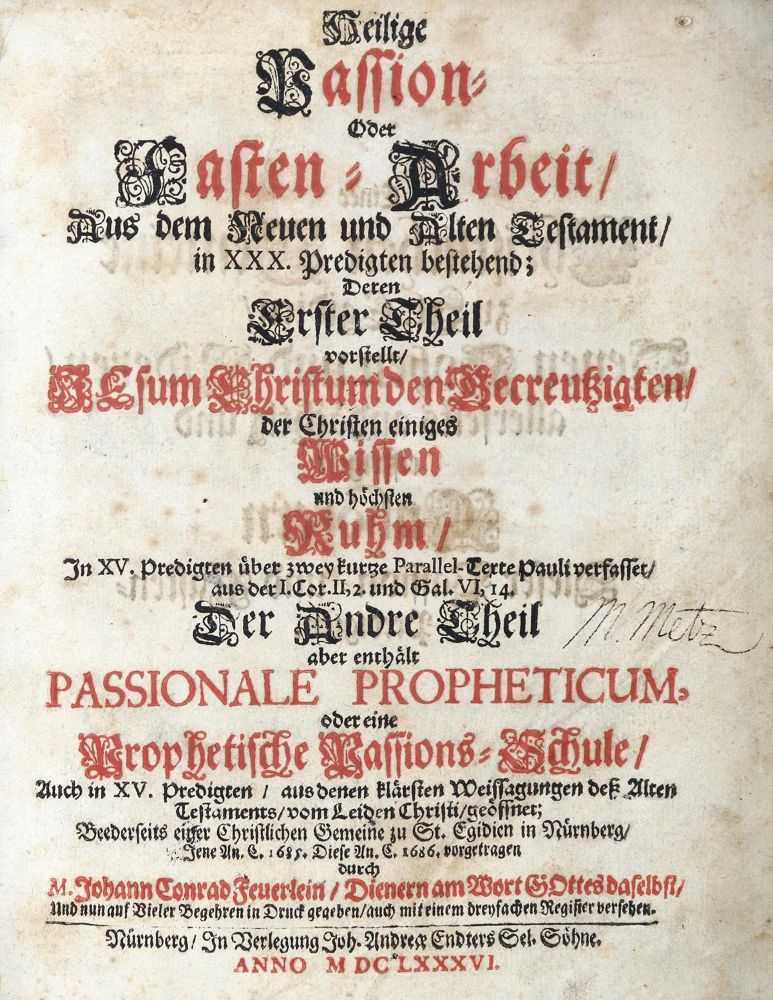 Heilige
Passion-
Oder
Fasten-Arbeit/
Aus dem Neuen und Alten Testament/
in XXX. Predigten bestehend;
Deren
Erster Theil
vorstellt/
JEsum Christum den Gecreutzigten/
der Christen einiges
Wissen
und höchsten
Ruhm/
In XV. Predigten über zwey kurtze Parallel-Texte Pauli verfasset/
aus der I. Cor. II, 2. und Gal. VI, 14.
Der Andre Theil
M. Metz
aber enthält
PASSIONALE PROPHETICUM,
oder eine
Prophetische Passions-Schule/
Auch in XV. Predigten / aus denen klärsten Weissagungen deß Alten
Testaments/vom Leiden Christi/geöffnet;
Beederseits einer Christlichen Gemeine zu St. Egidien in Nürnberg/
Jene An. C. 1685. Diese An. C. 1686. vorgetragen
durch
M. Johann Conrad Feuerlein / Dienern am Wort GOttes daselbst/
Und nun auf Vieler Begehren in Druck gegeben/auch mit einem dreyfachen Register versehen.
Nürnberg/ In Verlegung Joh. Andreæ Endters Sel. Söhne.
ANNO M DC LXXXVI.